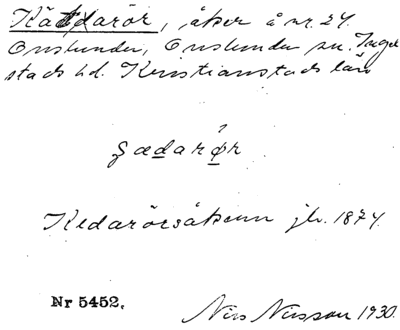 Kätdarör, åker å nr. 24
Önslunda, Önslunda sn. Ingel-
stads hd. Kristianstads län
ʂædarør
Kedarörsåkern jb. 1874.
Nr 5452.
Nils Nilsson 1930.